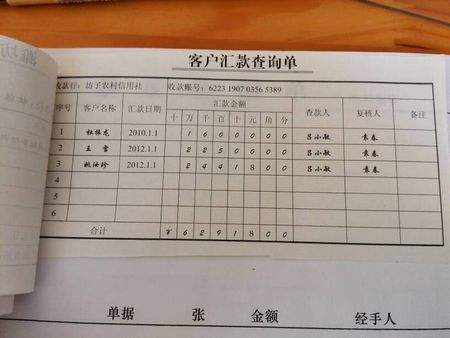 客户汇款查询单
收款行：坊子农村信用社 收款账号：6223 1907 0356 5389
序号 客户名称 汇款日期 汇款金额 查款人 复核人 备注
十 万 千 百 十 元 角 分
1 2010.1.1 1 6 0 0 0 0 0 吕小敏 袁春
2 王 2012.1.1 2 2 5 0 0 0 0 吕小敏 袁春
3 姚汝珍 2012.1.1 2 4 4 1 8 0 0 吕小敏 袁春
4
5
6
合计 ¥ 6 2 9 1 8 0 0
单据 张 金额 经手人